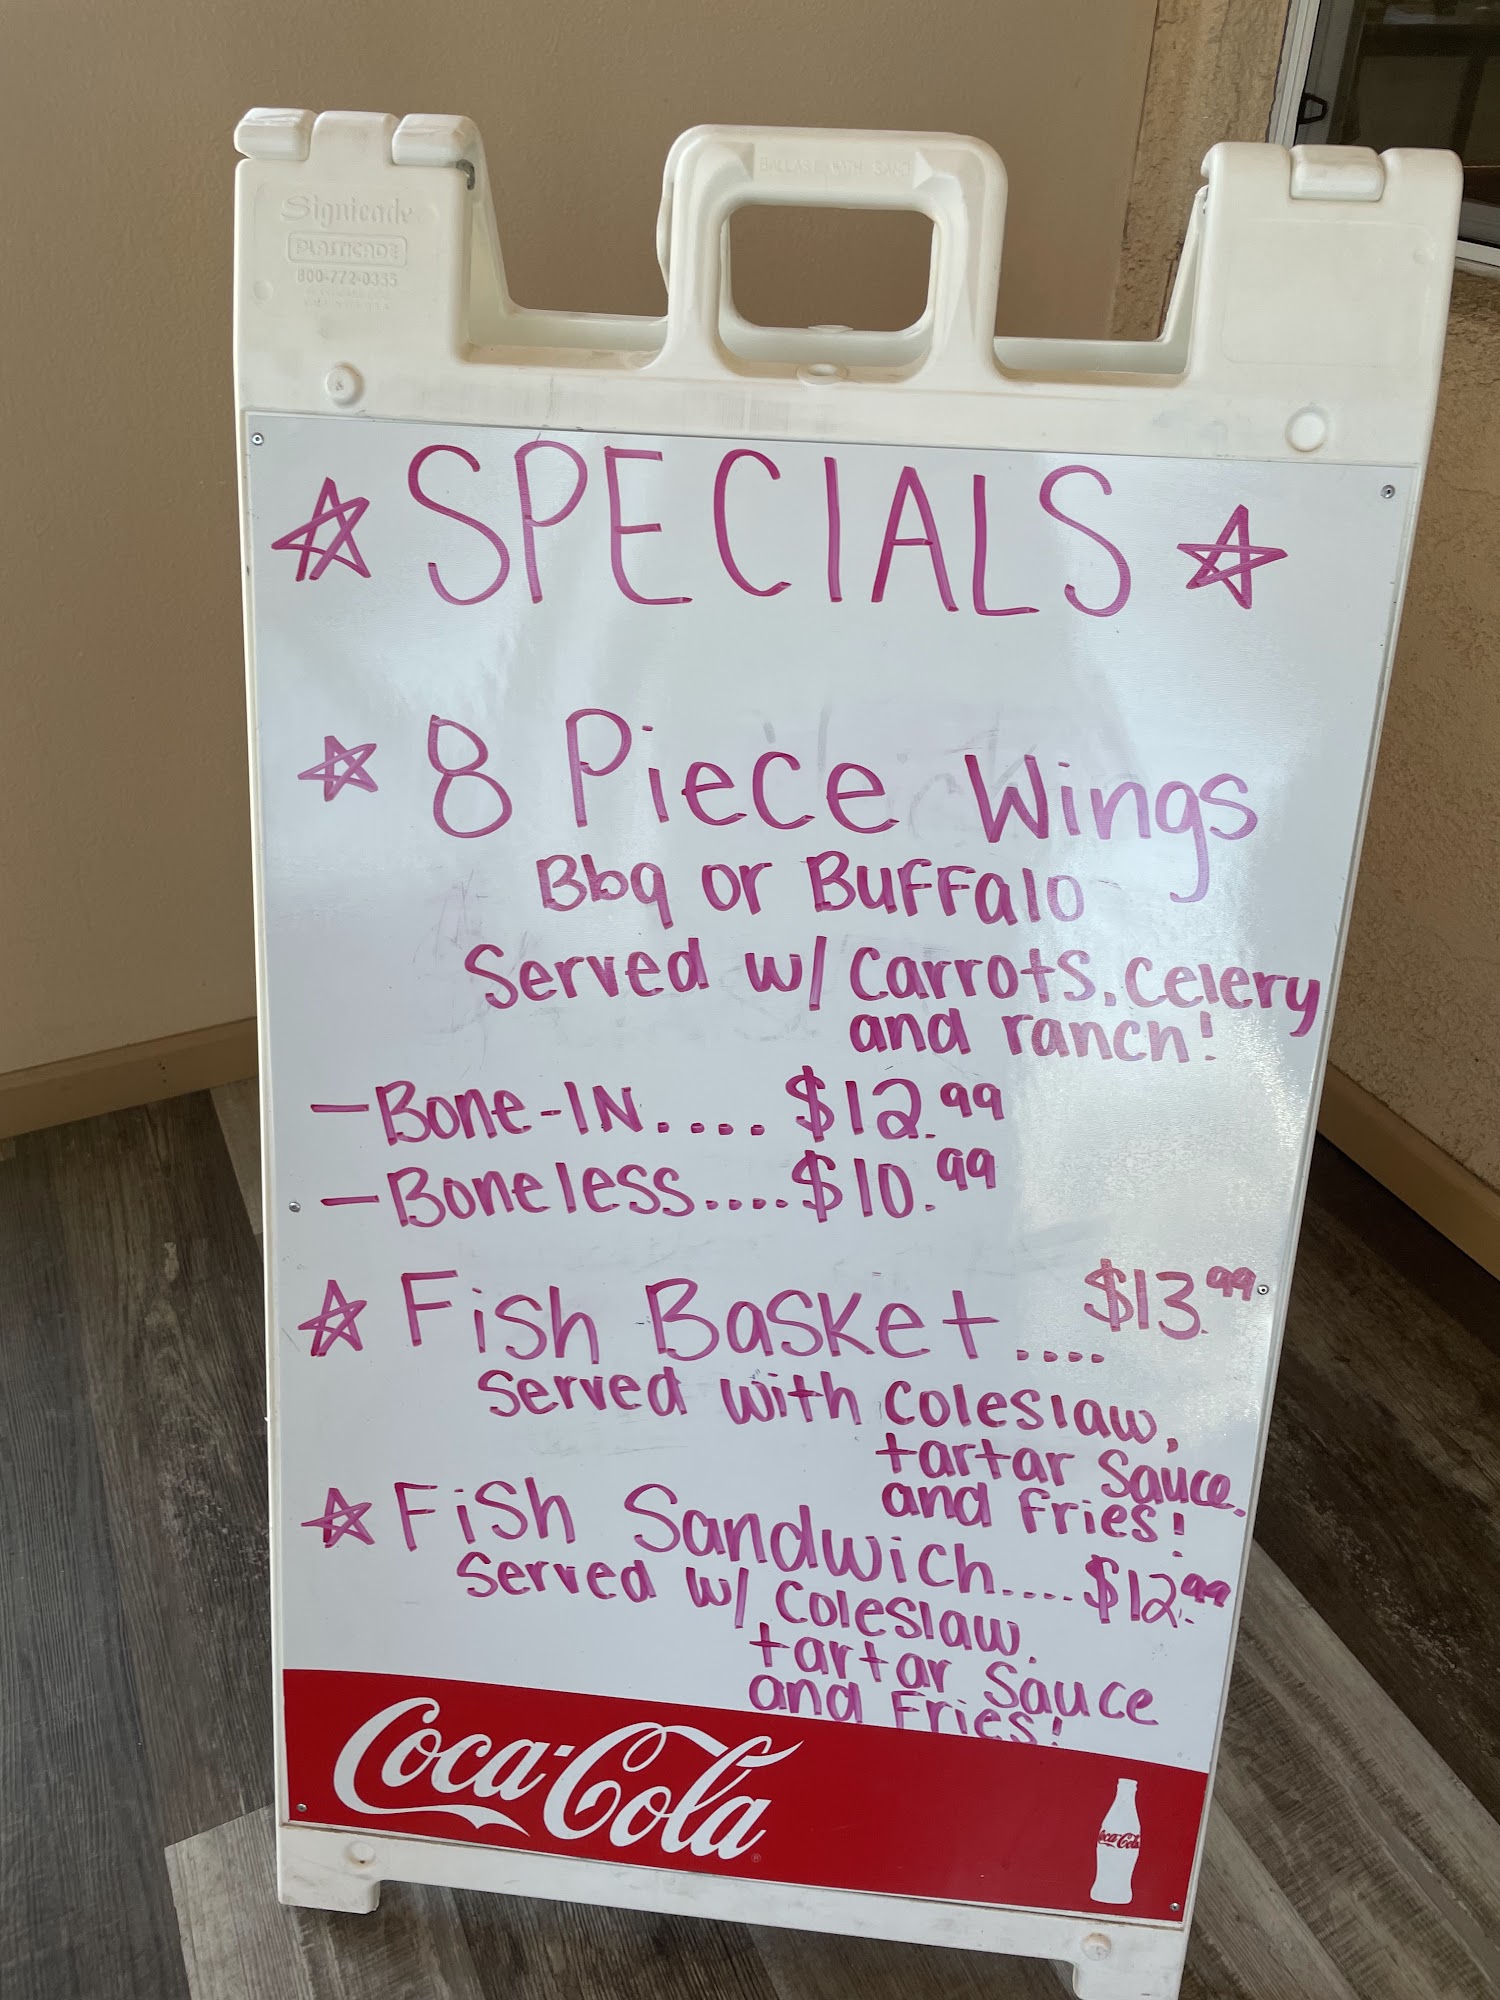 BALLAST WITH SAND
Signicade
PLASTICADE
800-772-0355
SPECIALS
8 Piece Wings
Bbq or Buffalo
Served w/ Carrots, Celery
and ranch!
- Bone-IN.... $12.99
- Boneless.... $10.99
Fish Basket.... $13.99
Served with Coleslaw,
tartar Sauce,
and fries!
Fish Sandwich.... $12.99
Served w/ Coleslaw,
tartar Sauce
and Fries!
Coca-Cola
Coca-Cola